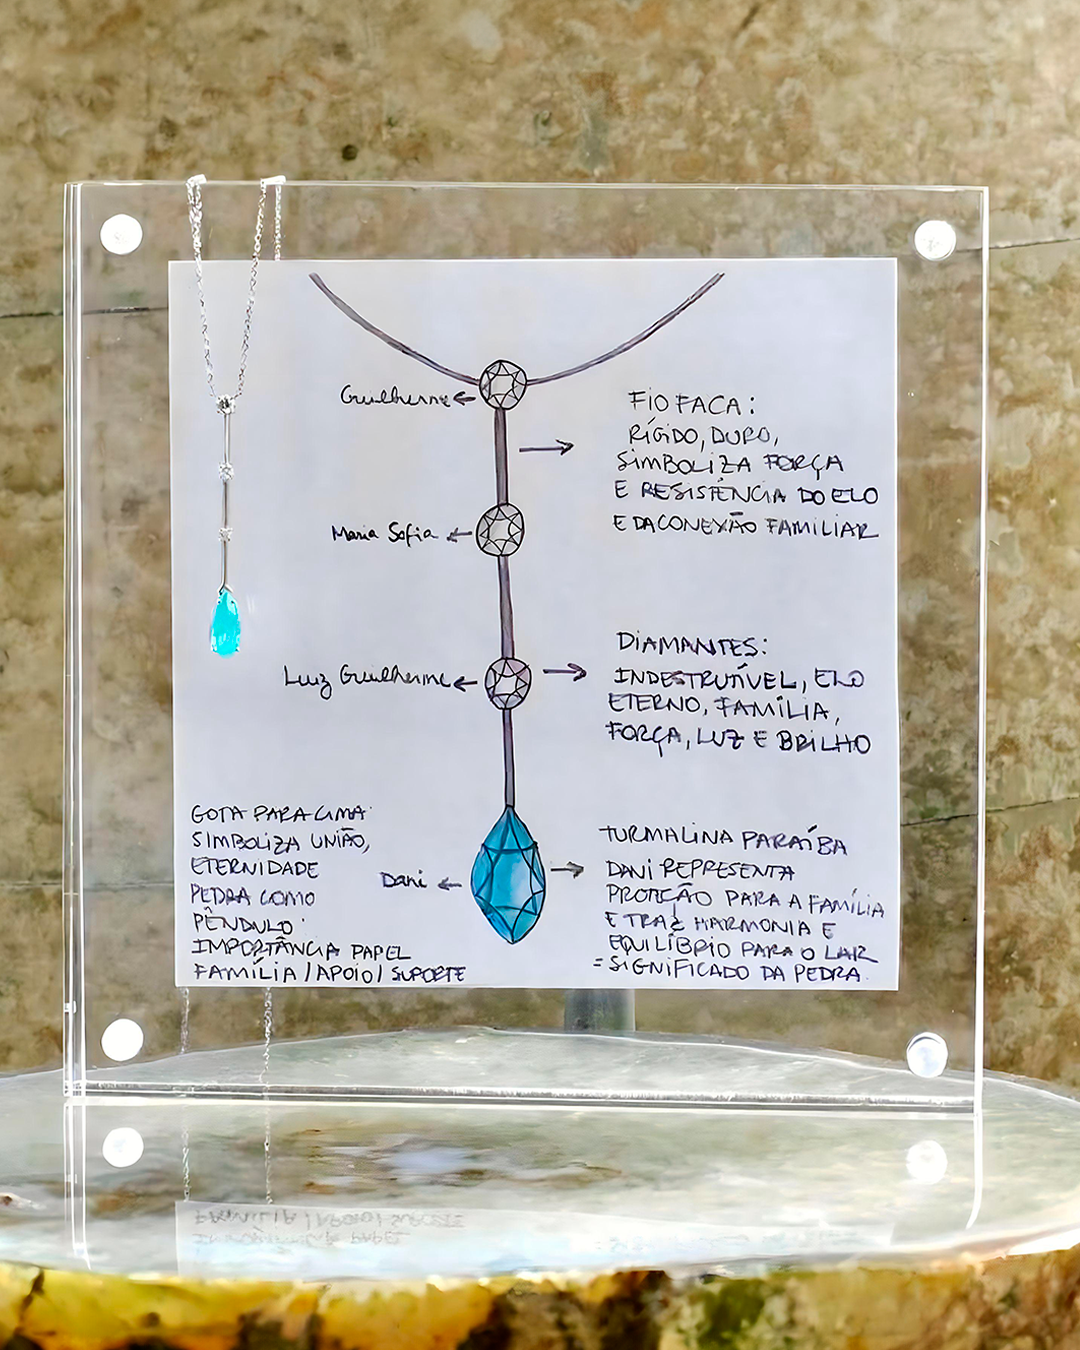 Guilherme
FIO FACA:
RÍGIDO, DURO,
SIMBOLIZA FORÇA
E RESISTÊNCIA DO ELO
E DA CONEXÃO FAMILIAR
Maria Sofia
Luiz Guilherme
DIAMANTES:
INDESTRUTÍVEL, ELO
ETERNO, FAMÍLIA,
FORÇA, LUZ E BRILHO
GOTA PARA CIMA
SIMBOLIZA UNIÃO,
ETERNIDADE
PEDRA COMO
PÊNDULO:
IMPORTÂNCIA PAPEL
FAMÍLIA / APOIO / SUPORTE
Dani
TURMALINA PARAÍBA
DANI REPRESENTA
PROTEÇÃO PARA A FAMÍLIA
E TRAZ HARMONIA E
EQUILÍBRIO PARA O LAR
= SIGNIFICADO DA PEDRA.